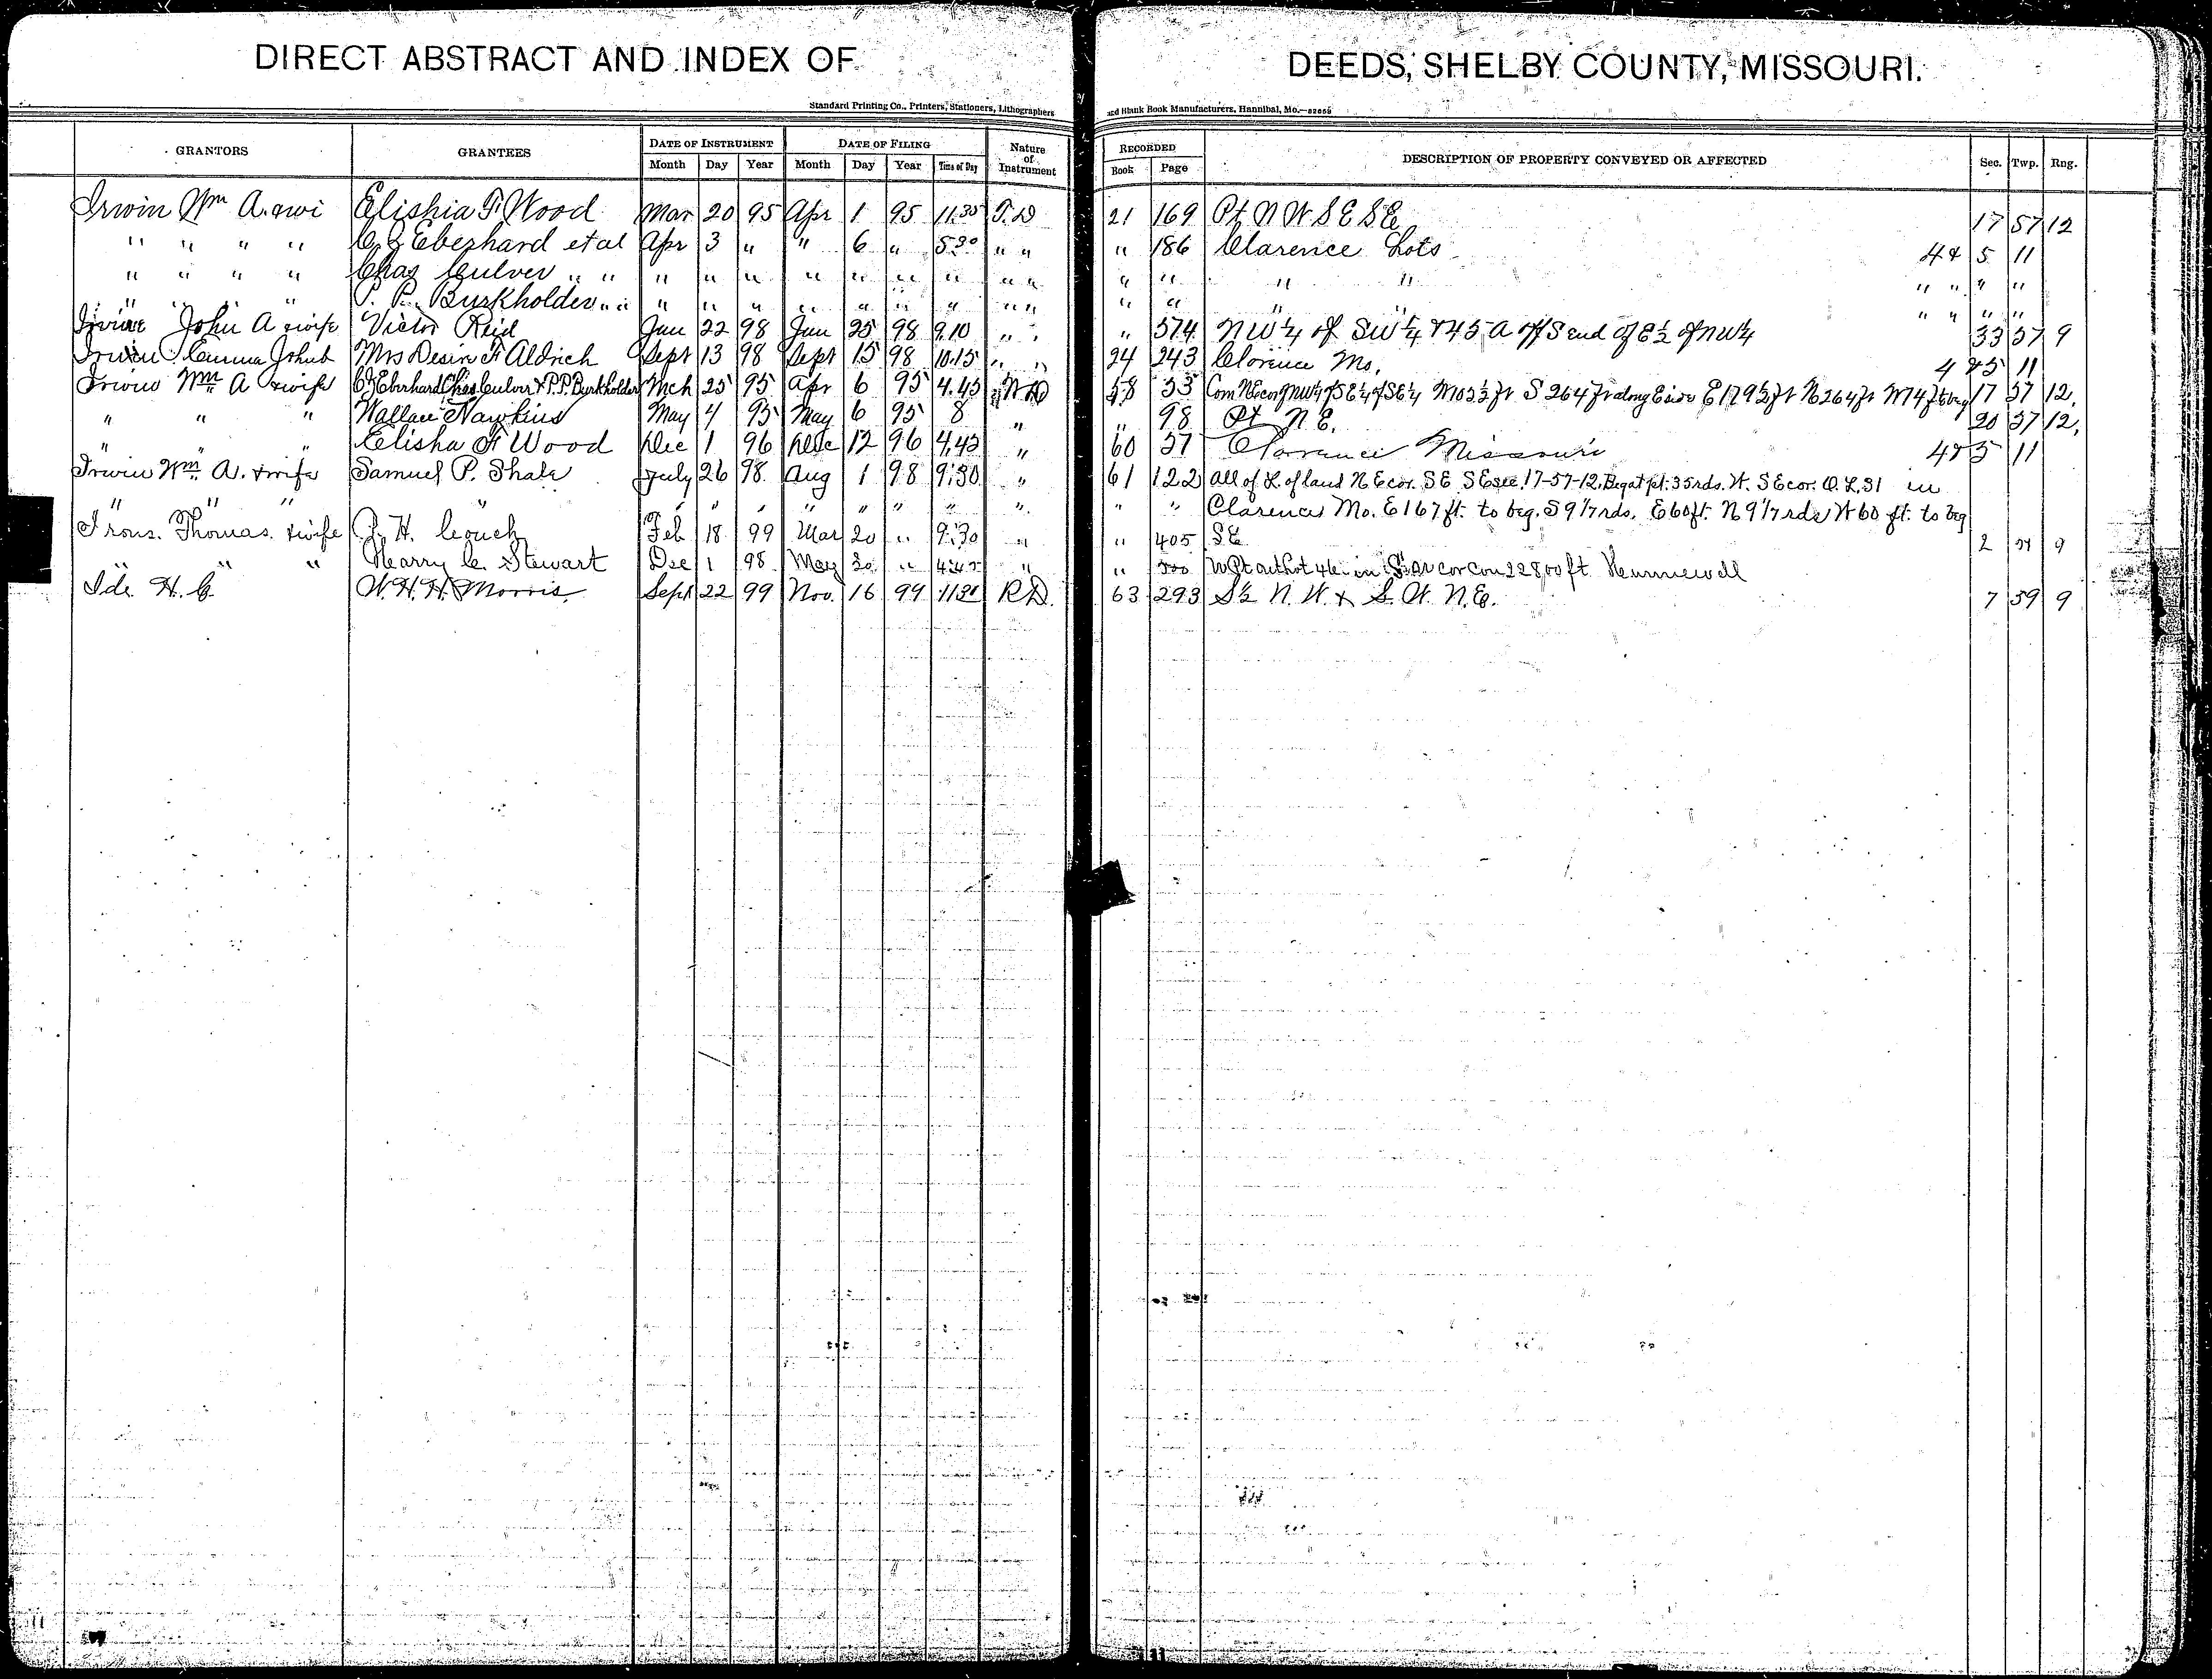 DIRECT ABSTRACT AND INDEX OF DEEDS, SHELBY COUNTY, MISSOURI.
Standard Printing Co., Printers, Stationers, Lithographers and Blank Book Manufacturers, Hannibal, Mo.
GRANTORS GRANTEES DATE OF INSTRUMENT DATE OF FILING Nature of Instrument RECORDED DESCRIPTION OF PROPERTY CONVEYED OR AFFECTED Sec. Twp. Rng.
Month Day Year Month Day Year Time of Day Book Page
Irwin Wm A. & wi Elishia F. Wood Mar 20 95 Apr 1 95 11.35 T.D 21 169 Pt N W S E S E 17 57 12
" " " " Eberhard et al Apr 3 " " 6 " 5 30 " " " 186 Clarence Lots 4 & 5 11
" " " " Chas Culver " " " " " " " " " " " " " " " " " " " "
" " " P. P. Burkholder " " " " " " " " " " " " " " " " " "
John A & wife Victor Reid Jan 22 98 Jan 25 98 9.10 " " " 574 NW 1/4 of SW 1/4 & 45 A off S end of E 1/2 of NW 1/4 33 57 9
Irwin Emma J & hub Mrs F Aldrich Sept 13 98 Sept 15 98 10.15 " " 24 243 Clarence Mo. 4 & 5 11
Irwin Wm A & wife Eberhard Chas Culver & P.P. Burkholder Mch 25 95 Apr 6 95 4.45 W D 58 33 Com NE cor of NW 1/4 of SE 1/4 of SE 1/4 W 102 1/2 ft S 264 ft along E side E 179 1/2 ft N 264 ft W 74 ft to beg 17 57 12
" " " Wallace Hawkins May 4 95 May 6 95 8 " " 98 Pt N.E. 20 57 12
" " " Elisha F Wood Dec 1 96 Dec 12 96 4.45 " 60 57 Clarence Missouri 4 & 5 11
Irwin Wm A. & wife Samuel P. Shale July 26 98 Aug 1 98 9:30 " 61 122 All of L. of land N E cor. S E S E sec. 17-57-12. Beg at pt. 35 rds. W. S E cor. O. L. 31 in
" " " " " " " " " " " " " " Clarence Mo. E 167 ft. to beg. S 9 1/7 rds. E 60 ft. N 9 1/7 rds W 60 ft. to beg
Irons. Thomas. & wife H. Couch Feb 18 99 Mar 20 " 9:30 " " 405 S.E. 2 9
" " " Harry C. Stewart Dec 1 98 May 20 " 4:45 " " Hunnewell
Ide H. C. W. H. H. Morris Sept 22 99 Nov. 16 99 R.D. 63 293 S 1/2 N. W. & S. W. N.E. 7 59 9